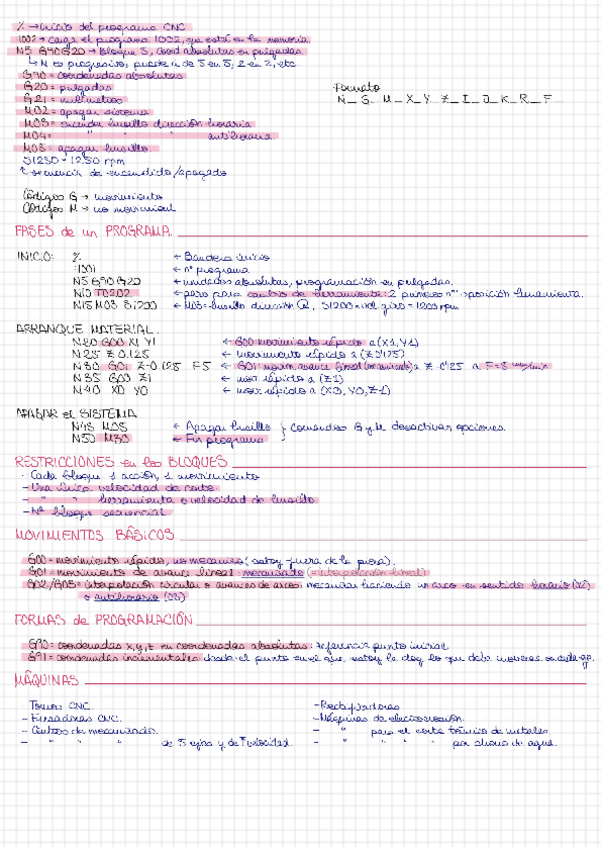 % → Inicio del programa CNC
1002 → carga el programa 1002, que está en la memoria
N5 G90G20 → Bloque 5, Coord absolutas en pulgadas.
↳ N es progresivo, puede ir de 5 en 5, 2 en 2, etc
G90 = coordenadas absolutas
G20 = pulgadas
G21 = milímetros
M02 = apagar sistema
M03 = encender husillo dirección horaria
M04 = " " " antihoraria
M05 = apagar husillo.
S1250 = 1250 rpm
↑ secuencia de encendido/apagado
Formato
N_ G_ M_ X_ Y_ Z_ I_ J_ K_ R_ F
Códigos G → movimiento
Códigos M → no movimient
FASES de un PROGRAMA
INICIO: % ← Bandera inicio
:1001 ← nº programa
N5 G90 G20 ← unidades absolutas, programación en pulgadas.
N10 T0202 ← paro para cambio de herramienta: 2 primeros nos = posición herramienta.
N15 M03 S1200 ← M03 = husillo dirección, S1200 = vel giro = 1200 rpm
ARRANQUE MATERIAL.
N20 G00 X1 Y1 ← G00: movimiento rápido a (X1, Y1)
N25 Z 0.125 ← movimiento rápido a (Z 0'125)
N30 G01 Z-0.125 F5 ← G01: movim avance lineal (mecanizado) a Z -0'125 a F=5
N35 G00 Z1 ← mov rápido a (Z1)
N40 X0 Y0 ← mov rápido a (X0, Y0, Z1)
APAGAR el SISTEMA
N45 M05 ← Apagar husillo } Comandos G y M desactivar opciones.
N50 M30 ← Fin programa
RESTRICCIONES en los BLOQUES
- Cada bloque 1 acción, 1 movimiento
- Una única velocidad de corte
- " " herramienta o velocidad de husillo
- Nº bloque secuencial
MOVIMIENTOS BÁSICOS
G00 = movimiento rápido, no mecaniza (estoy fuera de la pieza).
G01 = movimiento de avance lineal: mecanizado (= interpolación lineal)
G02/G03 = interpolación circular o avances de arcos: mecanizar haciendo un arco en sentido horario (02)
o antihorario (03)
FORMAS de PROGRAMACIÓN
G90 = coordenadas x,y,z en coordenadas absolutas: referencia punto inicial
G91 = coordenadas incrementales desde el punto en el que estoy le doy lo que debe moverse
MÁQUINAS
- Tornos CNC.
- Fresadoras CNC.
- Centros de mecanizado.
- " " " de 5 ejes y de ↑ velocidad.
- Rectificadoras
- Máquinas de electroerosión.
- " para el corte térmico de metales.
- " " " " por chorro de agua.